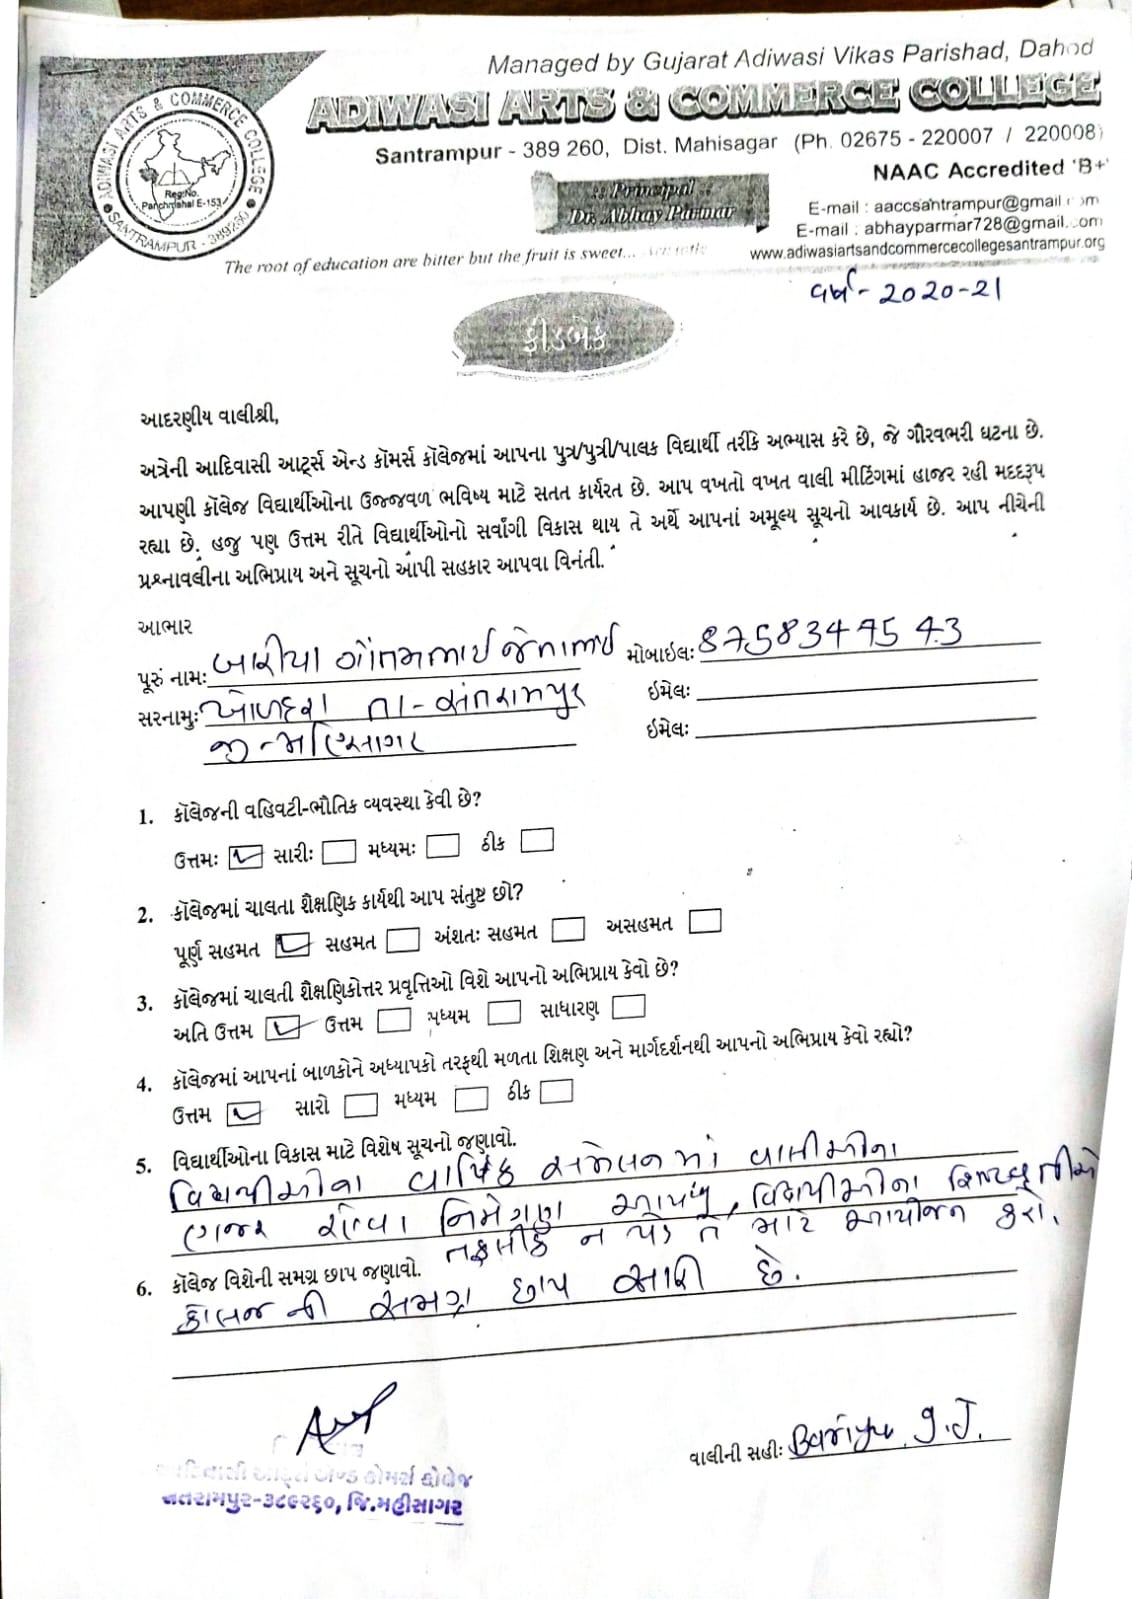 Managed by Gujarat Adiwasi Vikas Parishad, Dahod
ADIWASI ARTS & COMMERCE COLLEGE
Santrampur - 389 260, Dist. Mahisagar (Ph. 02675 - 220007 / 220008)
NAAC Accredited 'B+'
:: Principal ::
Dr. Abhay Parmar
E-mail : aaccsantrampur@gmail.com
E-mail : abhayparmar728@gmail.com
www.adiwasiartsandcommercecollegesantrampur.org
ADIWASI ARTS & COMMERCE COLLEGE
SANTRAMPUR - 389260
Reg.No.
Panchmahal E-153
The root of education are bitter but the fruit is sweet...
વર્ષ - 2020-21
ફીડબેક
આદરણીય વાલીશ્રી,
અત્રેની આદિવાસી આર્ટ્સ એન્ડ કૉમર્સ કૉલેજમાં આપના પુત્ર/પુત્રી/પાલક વિદ્યાર્થી તરીકે અભ્યાસ કરે છે, જે ગૌરવભરી ઘટના છે.
આપણી કૉલેજ વિદ્યાર્થીઓના ઉજ્જવળ ભવિષ્ય માટે સતત કાર્યરત છે. આપ વખતો વખત વાલી મીટિંગમાં હાજર રહી મદદરૂપ
રહ્યા છે. હજુ પણ ઉત્તમ રીતે વિદ્યાર્થીઓનો સર્વાંગી વિકાસ થાય તે અર્થે આપનાં અમૂલ્ય સૂચનો આવકાર્ય છે. આપ નીચેની
પ્રશ્નાવલીના અભિપ્રાય અને સૂચનો આપી સહકાર આપવા વિનંતી.
આભાર
પૂરું નામઃ બારીયા ગૌતમભાઈ જેનાભાઈ મોબાઈલઃ 8758349543
સરનામુઃ તા-સંતરામપુર ઇમેલઃ
જી-મહિસાગર ઇમેલઃ
1. કૉલેજની વહિવટી-ભૌતિક વ્યવસ્થા કેવી છે?
ઉત્તમઃ સારીઃ મધ્યમઃ ઠીક
2. કૉલેજમાં ચાલતા શૈક્ષણિક કાર્યથી આપ સંતુષ્ટ છો?
પૂર્ણ સહમત સહમત અંશતઃ સહમત અસહમત
3. કૉલેજમાં ચાલતી શૈક્ષણિકોત્તર પ્રવૃત્તિઓ વિશે આપનો અભિપ્રાય કેવો છે?
અતિ ઉત્તમ ઉત્તમ મધ્યમ સાધારણ
4. કૉલેજમાં આપનાં બાળકોને અધ્યાપકો તરફથી મળતા શિક્ષણ અને માર્ગદર્શનથી આપનો અભિપ્રાય કેવો રહ્યો?
ઉત્તમ સારો મધ્યમ ઠીક
5. વિદ્યાર્થીઓના વિકાસ માટે વિશેષ સૂચનો જણાવો.
વાર્ષિક સંમેલનમાં વાલીઓના
નિમંત્રણ આપવું,
તકલીફ ન પડે તે માટે આયોજન કરો.
6. કૉલેજ વિશેની સમગ્ર છાપ જણાવો.
કોલેજ ની સમગ્ર છાપ સારી છે.
વાલીની સહીઃ Bariya G.J.
આદિવાસી આર્ટ્સ એન્ડ કોમર્સ કોલેજ
સંતરામપુર-૩૮૯૨૬૦, જિ.મહીસાગર